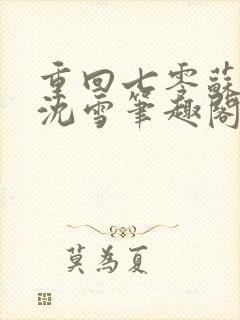 重回七零蘇
沈雪筆趣閣
莫為夏